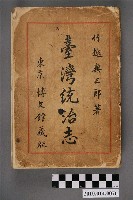 竹越與三郎著
臺灣統治志
東京 博文館藏版
2010.014.0071